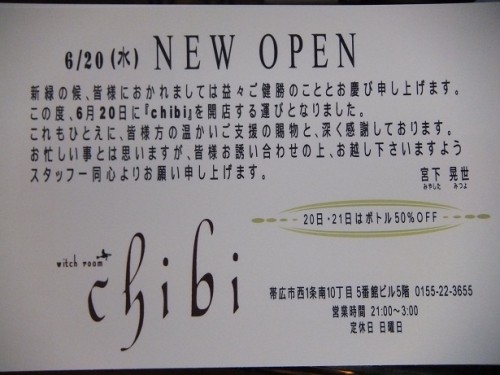 6/20(水) NEW OPEN
新緑の候、皆様におかれましては益々ご健勝のこととお慶び申し上げます。
この度、6月20日に『chibi』を開店する運びとなりました。
これもひとえに、皆様方の温かいご支援の賜物と、深く感謝しております。
お忙しい事とは思いますが、皆様お誘い合わせの上、お越し下さいますよう
スタッフ一同心よりお願い申し上げます。
宮下 晃世
みやした みつよ
20日・21日はボトル50%OFF
witch room
chibi
帯広市西1条南10丁目 5番館ビル5階 0155-22-3655
営業時間 21:00~3:00
定休日 日曜日